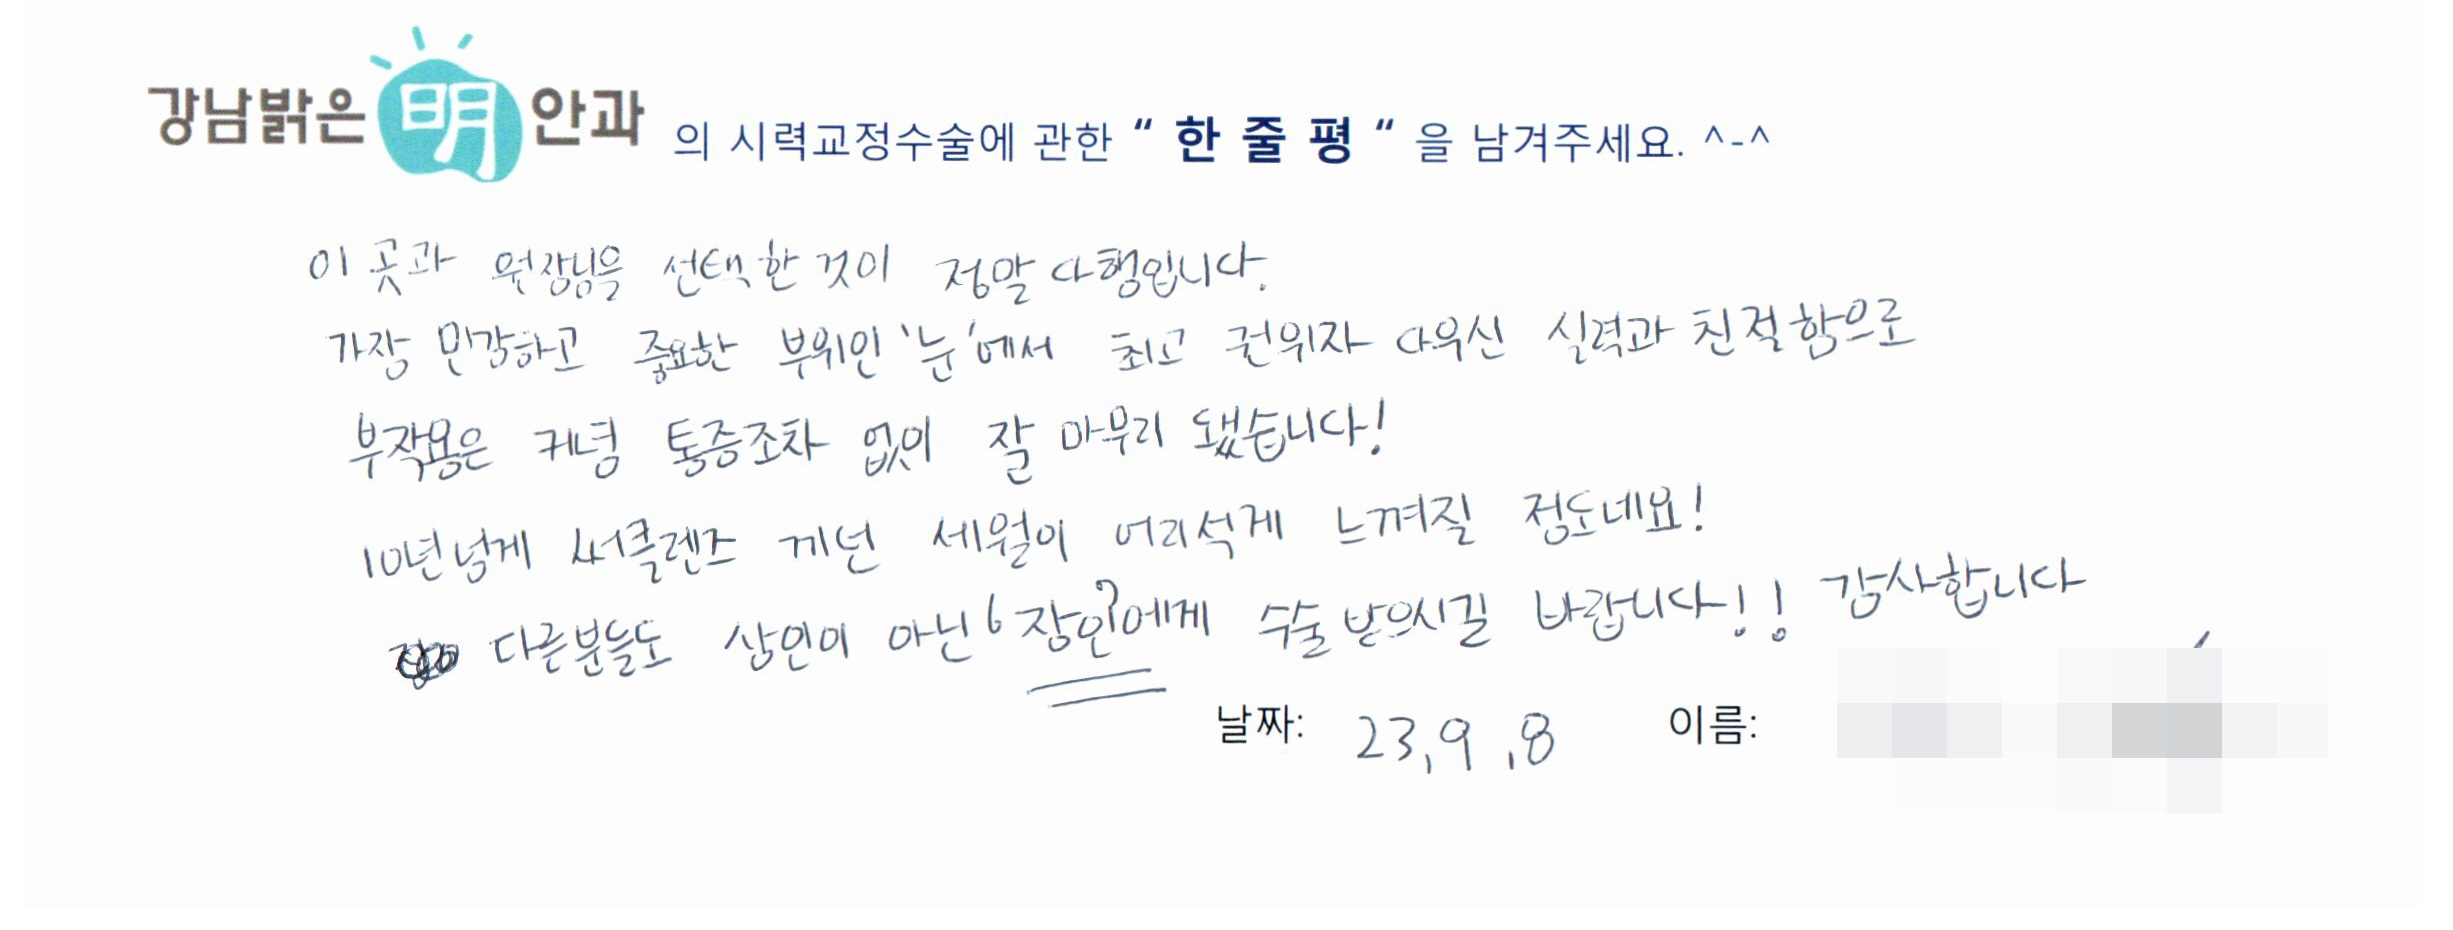 강남밝은 明 안과 의 시력교정수술에 관한 “ 한 줄 평 “ 을 남겨주세요. ^-^
이 곳과 원장님을 선택한 것이 정말 다행입니다.
가장 민감하고 중요한 부위인 '눈'에서 최고 권위자 다우신 실력과 친절함으로
부작용은 커녕 통증조차 없이 잘 마무리 됐습니다!
10년넘게 써클렌즈 끼던 세월이 어리석게 느껴질 정도네요!
다른분들도 상인이 아닌 '장인'에게 수술 받으시길 바랍니다!! 감사합니다
날짜: 23.9.8 이름: